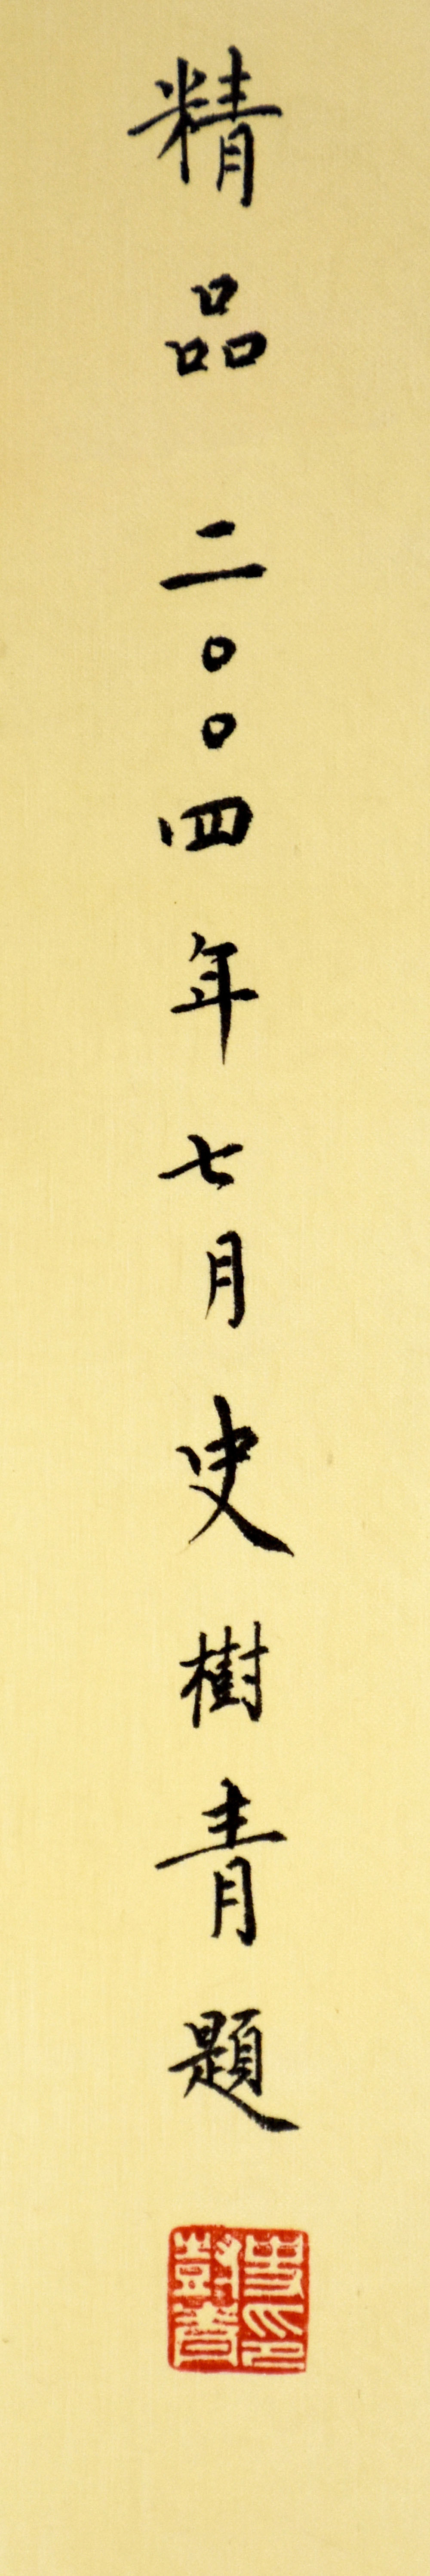 精品 二〇〇四年七月史樹青題
史印樹青